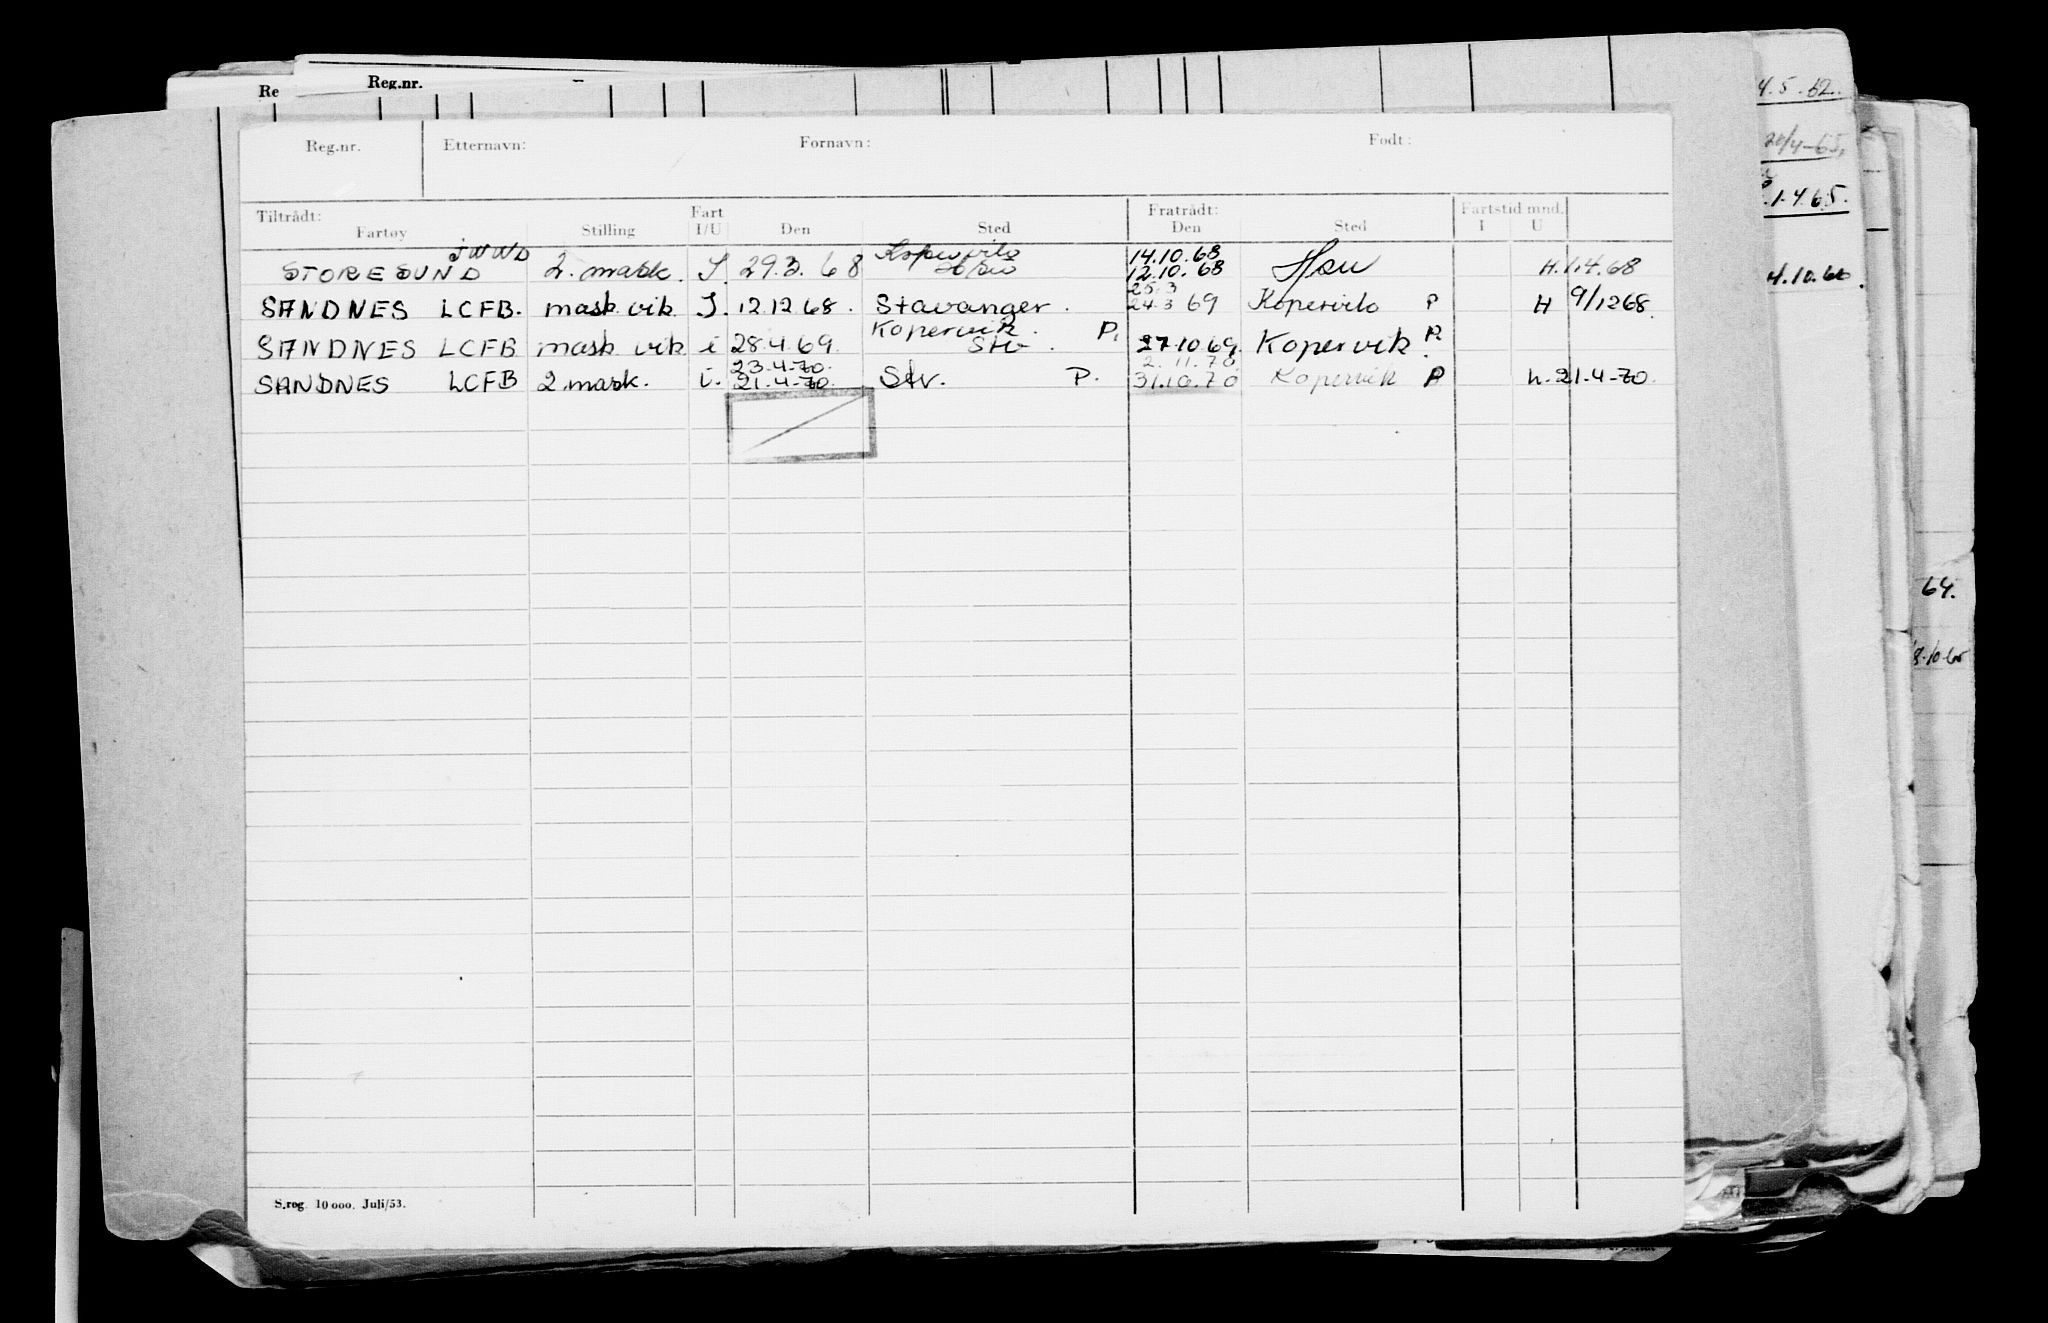 Re Reg.nr.
Reg.nr. Etternavn: Fornavn: Født:
Tiltrådt: Fartøy Stilling Fart I/U Den Sted Fratrådt: Den Sted Fartstid mnd. I U
JWWD Kopervik 14.10.68
STORESUND 2. mask. I. 29.3.68 12.10.68 Hau H.1.4.68
25.3
SANDNES LCFB. mask vik I. 12.12.68. Stavanger. 24.3 69 Kopervik P H 9/1268.
Kopervik.
SANDNES LCFB mask vik i 28.4.69. Stv. P. 27.10.69. Kopervik P.
23.4-70. 2.11.70
SANDNES LCFB 2.mask. i. 21.4-70. Stv. P. 31.10.70 Kopervik P h.21.4-70.
S.reg. 10 000. Juli/53.
4.5.62.
20/4-65.
1.4.65.
4.10.60.
64.
8.10.60